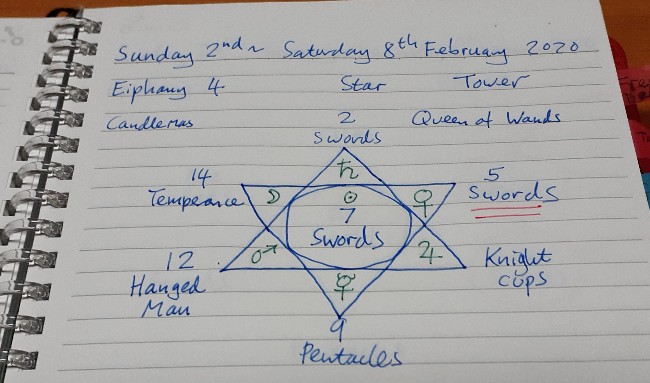 Sunday 2nd ~ Saturday 8th February 2020
Eiphany 4 Star Tower
Candlemas 2 Swords Queen of Wands
14 Temperance ☽ ♄ ♀ 5 Swords
☉ 7 Swords
12 Hanged Man ♂ ♃ Knight cups
☿
9 Pentacles